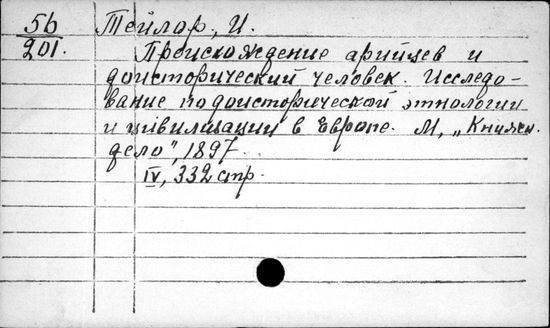 56 Тейлор, И.
201. Происхождение арийцев и
доисторический человек. Исследо-
вание по доисторической этнологии
и цивилизации в Европе. М, „Книжн.
дело", 1897.
IV, 332 стр.